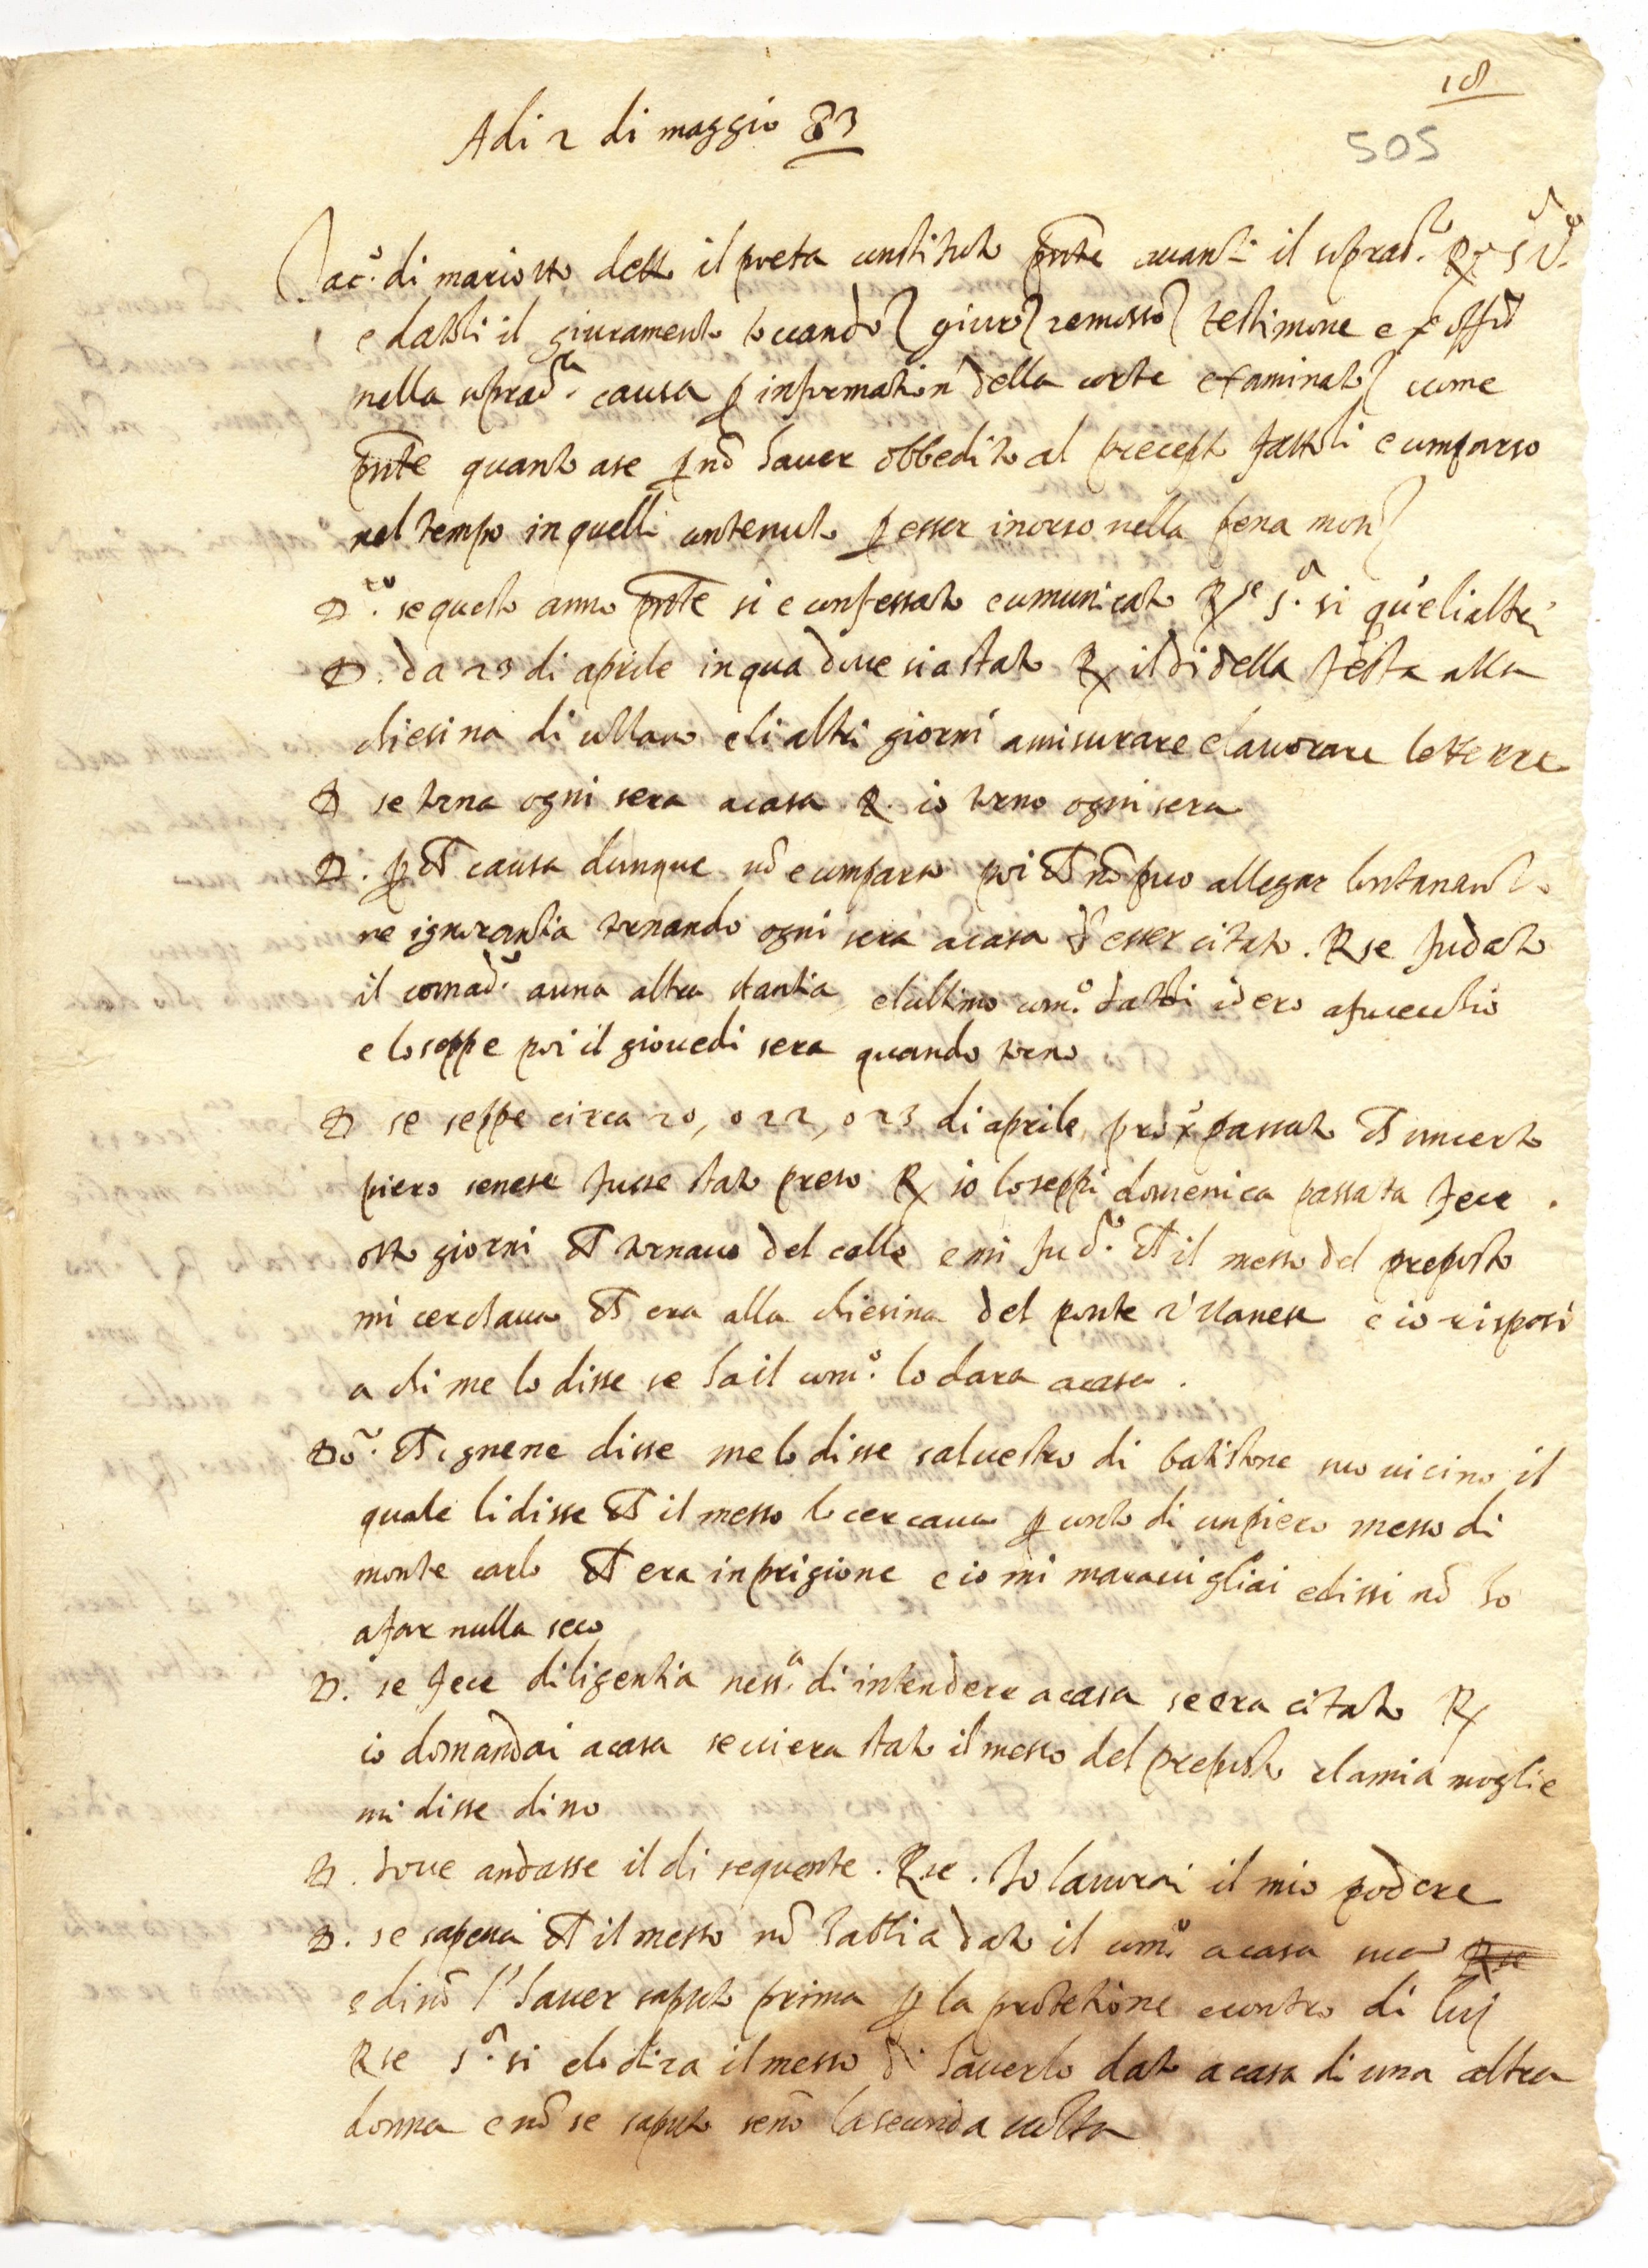 18
505
Adi 2 di maggio 83
Jac.º di mariotto detto il preta constituto pnte avanti il soprad.to R S V.
e datoli il giuramento toccando giuro remosso testimone e ex offo
nella soprad.ta causa p information della corte examinato come
pnte quanto a se p nō haver obbedito al precepto fattoli e comparso
nel tempo in quelli contenuto p esser incorso nella pena mon
D.to se questo anno pnte si e confessato e comunicato R se s.r si qu elialtri
D. da 23 di aprile in qua dove sia stato R il di della festa alla
chiesina di e li altri giorni a misurare e lavorare le terre
D se torna ogni sera a casa R. io torno ogni sera
D. p ch causa dunque nō e comparso poi ch nō puo allegar lontananza
ne ignorantia tornando ogni sera a casa d esser citato. Rse fu dato
il comad.to a una altra stantia e l ultimo com.to datoli io ero a fucecchio
e lo seppe poi il giovedi sera quando torno
D se seppe circa 20, o 22, o 23 di aprile prox passato ch un certo
piero senese fusse stato preso R io lo seppi domenica passata fece
otto giorni ch tornavo del colle e mi fu d.to ch il messo del preposto
mi cerchava ch era alla chiesina del ponte e io risposi
a chi me lo disse se ha il com.to lo dara a casa.
Do. ch gnene disse me lo disse salvestro di batistone suo vicino il
quale li disse ch il messo lo cercava p conto di un piero messo di
monte carlo ch era in prigione e io mi maravigliai e dissi nō ho
a far nulla seco
D. se fece diligentia ness.a di intendere a casa se era citato R
io domandai a casa se vi era stato il messo del preposto e la mia moglie
mi disse di no
D. dove andasse il di seguente. Rse. Io lavorai il mio podere
D. se sapeva ch il messo nō habbia dato il com.to a casa sua
e di nō l haver saputo prima p la protetione contro di lui
Rse s.r si e lo dira il messo di haverlo dato a casa di una altra
donna e nō se saputo senō la seconda volta